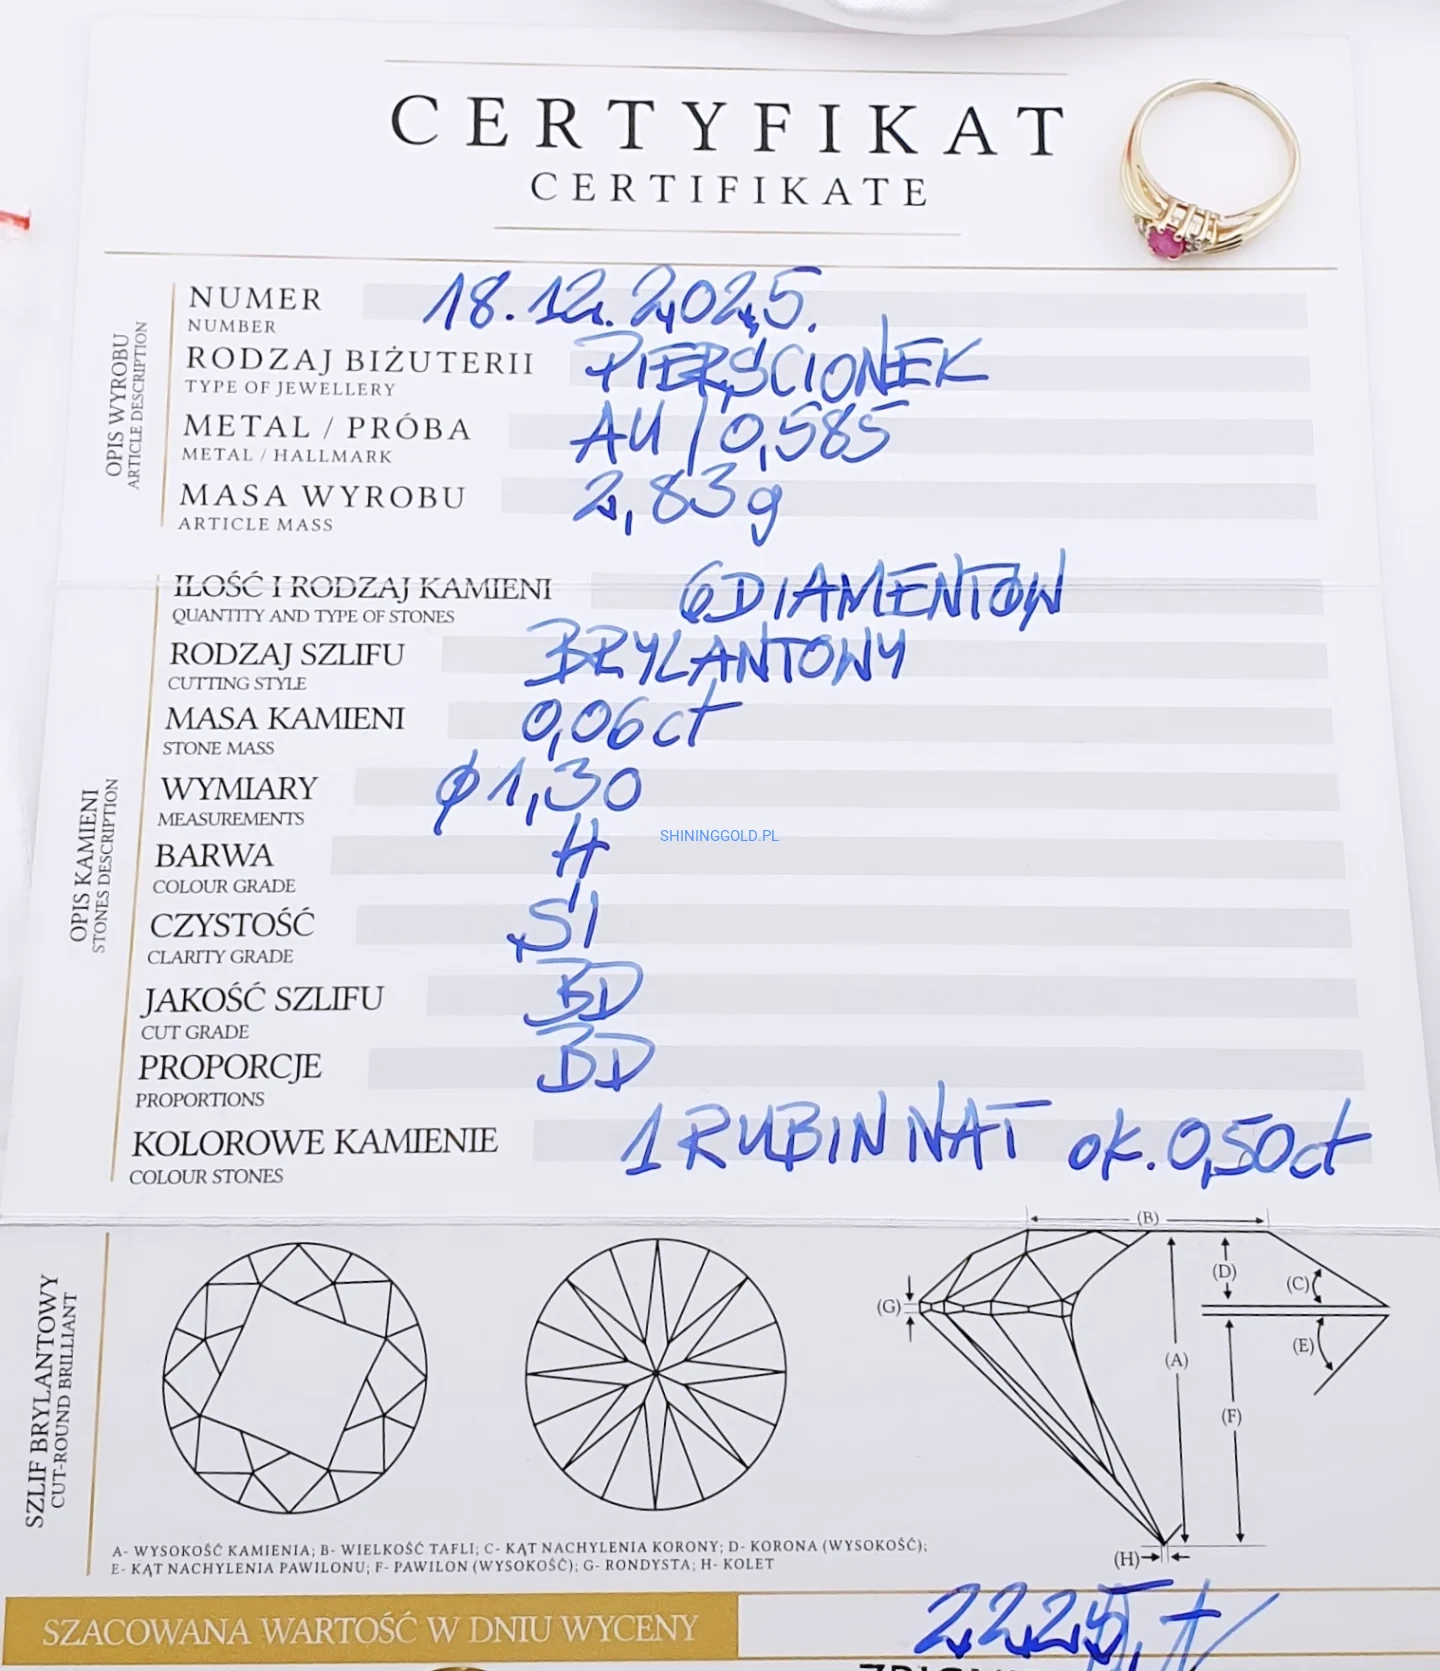 CERTYFIKAT
CERTIFIKATE
OPIS WYROBU
ARTICLE DESCRIPTION
NUMER 18.12.2025.
NUMBER
RODZAJ BIŻUTERII PIERŚCIONEK
TYPE OF JEWELLERY
METAL / PRÓBA AU / 0,585
METAL / HALLMARK
MASA WYROBU 2,83 g
ARTICLE MASS
OPIS KAMIENI
STONES DESCRIPTION
ILOŚĆ I RODZAJ KAMIENI 6 DIAMENTÓW
QUANTITY AND TYPE OF STONES
RODZAJ SZLIFU BRYLANTOWY
CUTTING STYLE
MASA KAMIENI 0,06 ct
STONE MASS
WYMIARY ϕ 1,30
MEASUREMENTS
SHININGGOLD.PL
BARWA H
COLOUR GRADE
CZYSTOŚĆ SI
CLARITY GRADE
JAKOŚĆ SZLIFU BD
CUT GRADE
PROPORCJE BD
PROPORTIONS
KOLOROWE KAMIENIE 1 RUBIN NAT ok. 0,50ct
COLOUR STONES
SZLIF BRYLANTOWY
CUT-ROUND BRILLIANT
(B)
(D)
(C)
(G)
(E)
(A)
(F)
(H)
A- WYSOKOŚĆ KAMIENIA; B- WIELKOŚĆ TAFLI; C- KĄT NACHYLENIA KORONY; D- KORONA (WYSOKOŚĆ);
E- KĄT NACHYLENIA PAWILONU; F- PAWILON (WYSOKOŚĆ); G- RONDYSTA; H- KOLET
SZACOWANA WARTOŚĆ W DNIU WYCENY 2225,